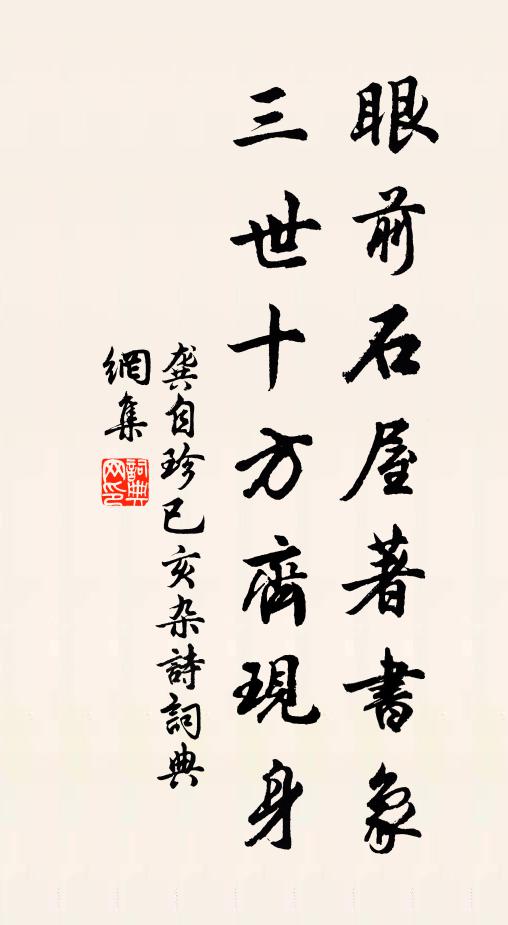 眼前石屋著書象
三世十方齊現身
龔自珍己亥杂詩詞典
網集
詞典
网印